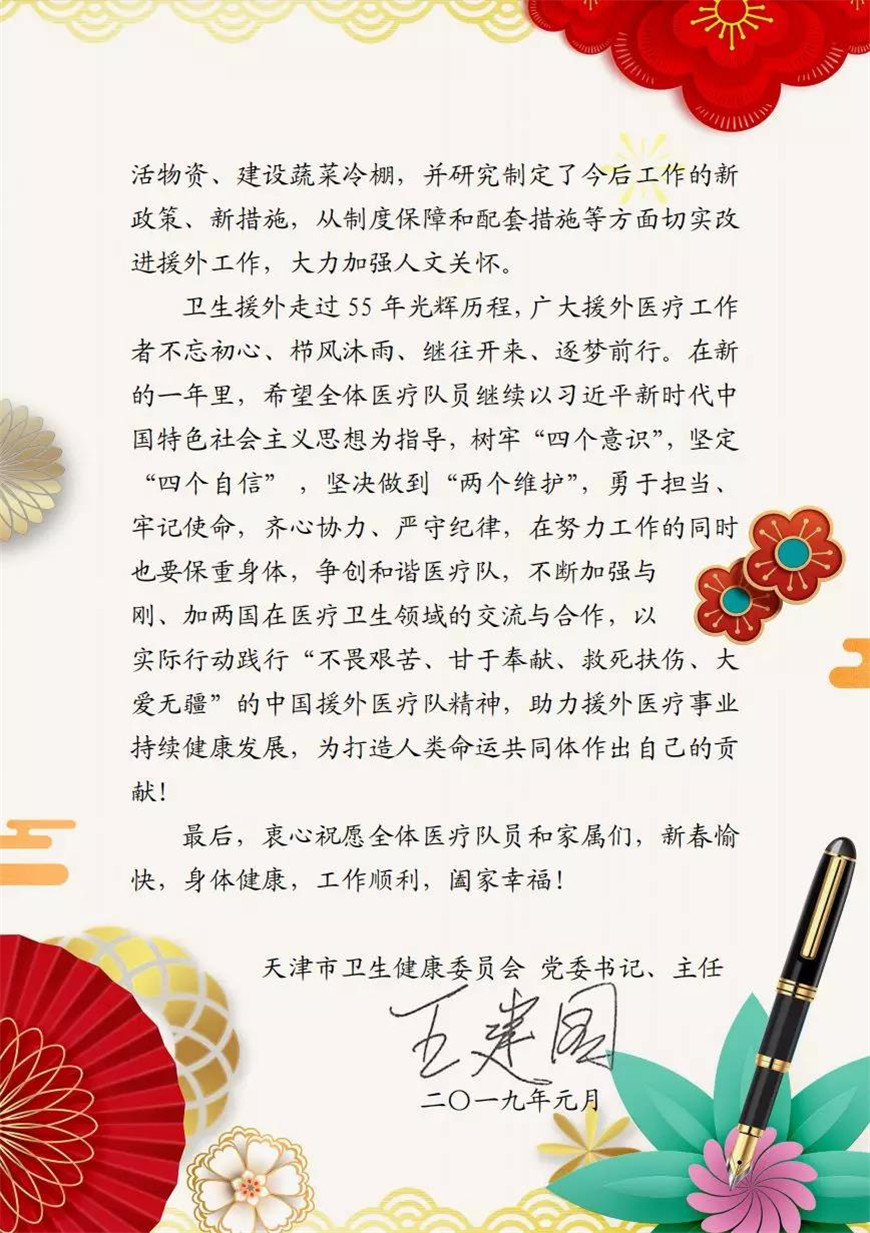 活物资、建设蔬菜冷棚，并研究制定了今后工作的新
政策、新措施，从制度保障和配套措施等方面切实改
进援外工作，大力加强人文关怀。
卫生援外走过 55 年光辉历程，广大援外医疗工作
者不忘初心、栉风沐雨、继往开来、逐梦前行。在新
的一年里，希望全体医疗队员继续以习近平新时代中
国特色社会主义思想为指导，树牢“四个意识”，坚定
“四个自信” ，坚决做到“两个维护”，勇于担当、
牢记使命，齐心协力、严守纪律，在努力工作的同时
也要保重身体，争创和谐医疗队，不断加强与
刚、加两国在医疗卫生领域的交流与合作，以
实际行动践行“不畏艰苦、甘于奉献、救死扶伤、大
爱无疆”的中国援外医疗队精神，助力援外医疗事业
持续健康发展，为打造人类命运共同体作出自己的贡
献！
最后，衷心祝愿全体医疗队员和家属们，新春愉
快，身体健康，工作顺利，阖家幸福！
天津市卫生健康委员会 党委书记、主任
王建国
二〇一九年元月